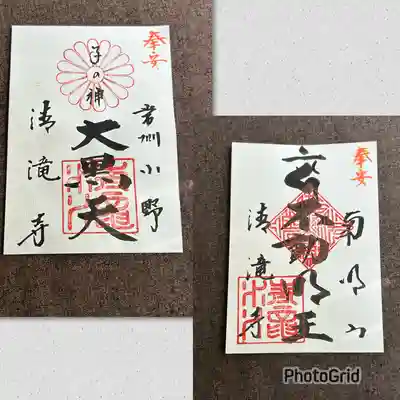 奉安
常州小野
子の神
大黒天
清滝寺
奉安
南明山
不動明王
清滝寺
PhotoGrid